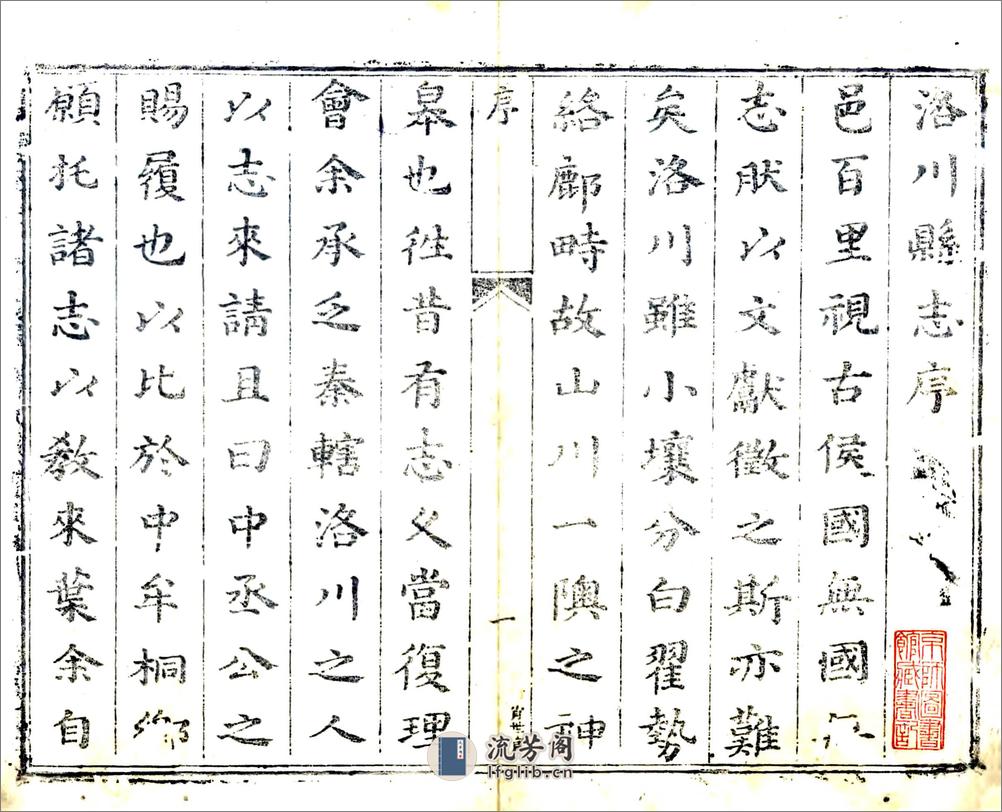 洛川縣志序
邑百里視古侯國無國
志肰以文獻徵之斯亦難
矣洛川雖小壤分白翟勢
絡鄜畤故山川一隩之神
序
一
皋也徃昔有志乂當復理
會余承乏秦轄洛川之人
以志來請且曰中丞公之
賜履也以比於中牟桐鄉
願托諸志以教來葉余自
京師圖書館藏書記
流芳阁
lfglib.cn